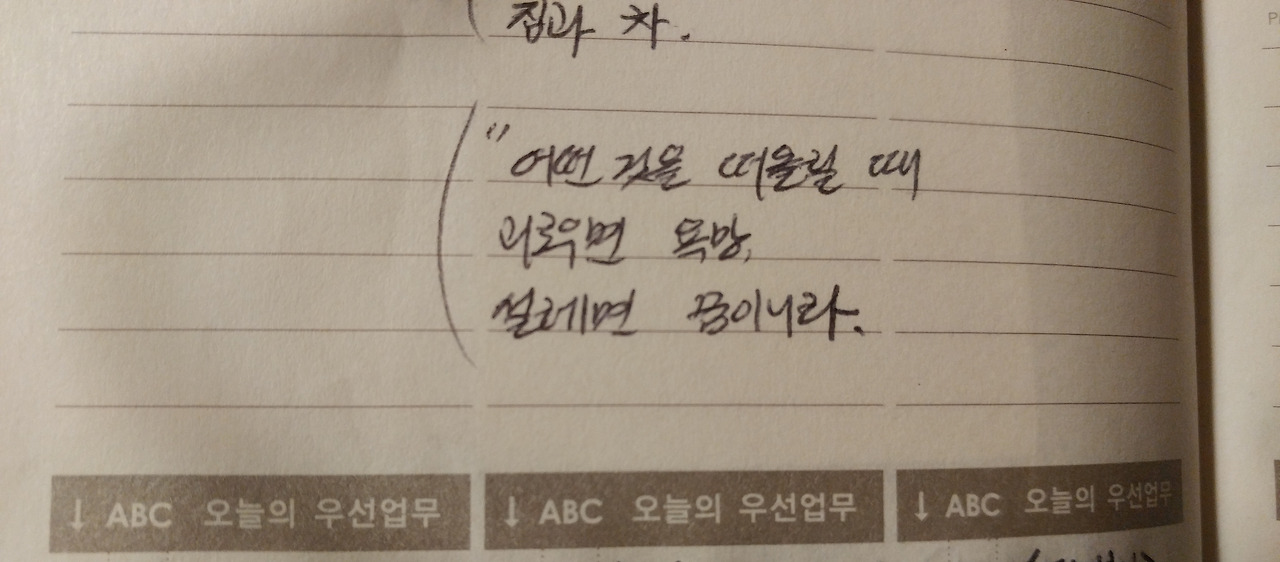 집과 차.
"어떤 것을 떠올릴 때
괴로우면 욕망,
설레면 꿈이니라.
↓ ABC 오늘의 우선업무 ↓ ABC 오늘의 우선업무 ↓ ABC 오늘의 우선업무